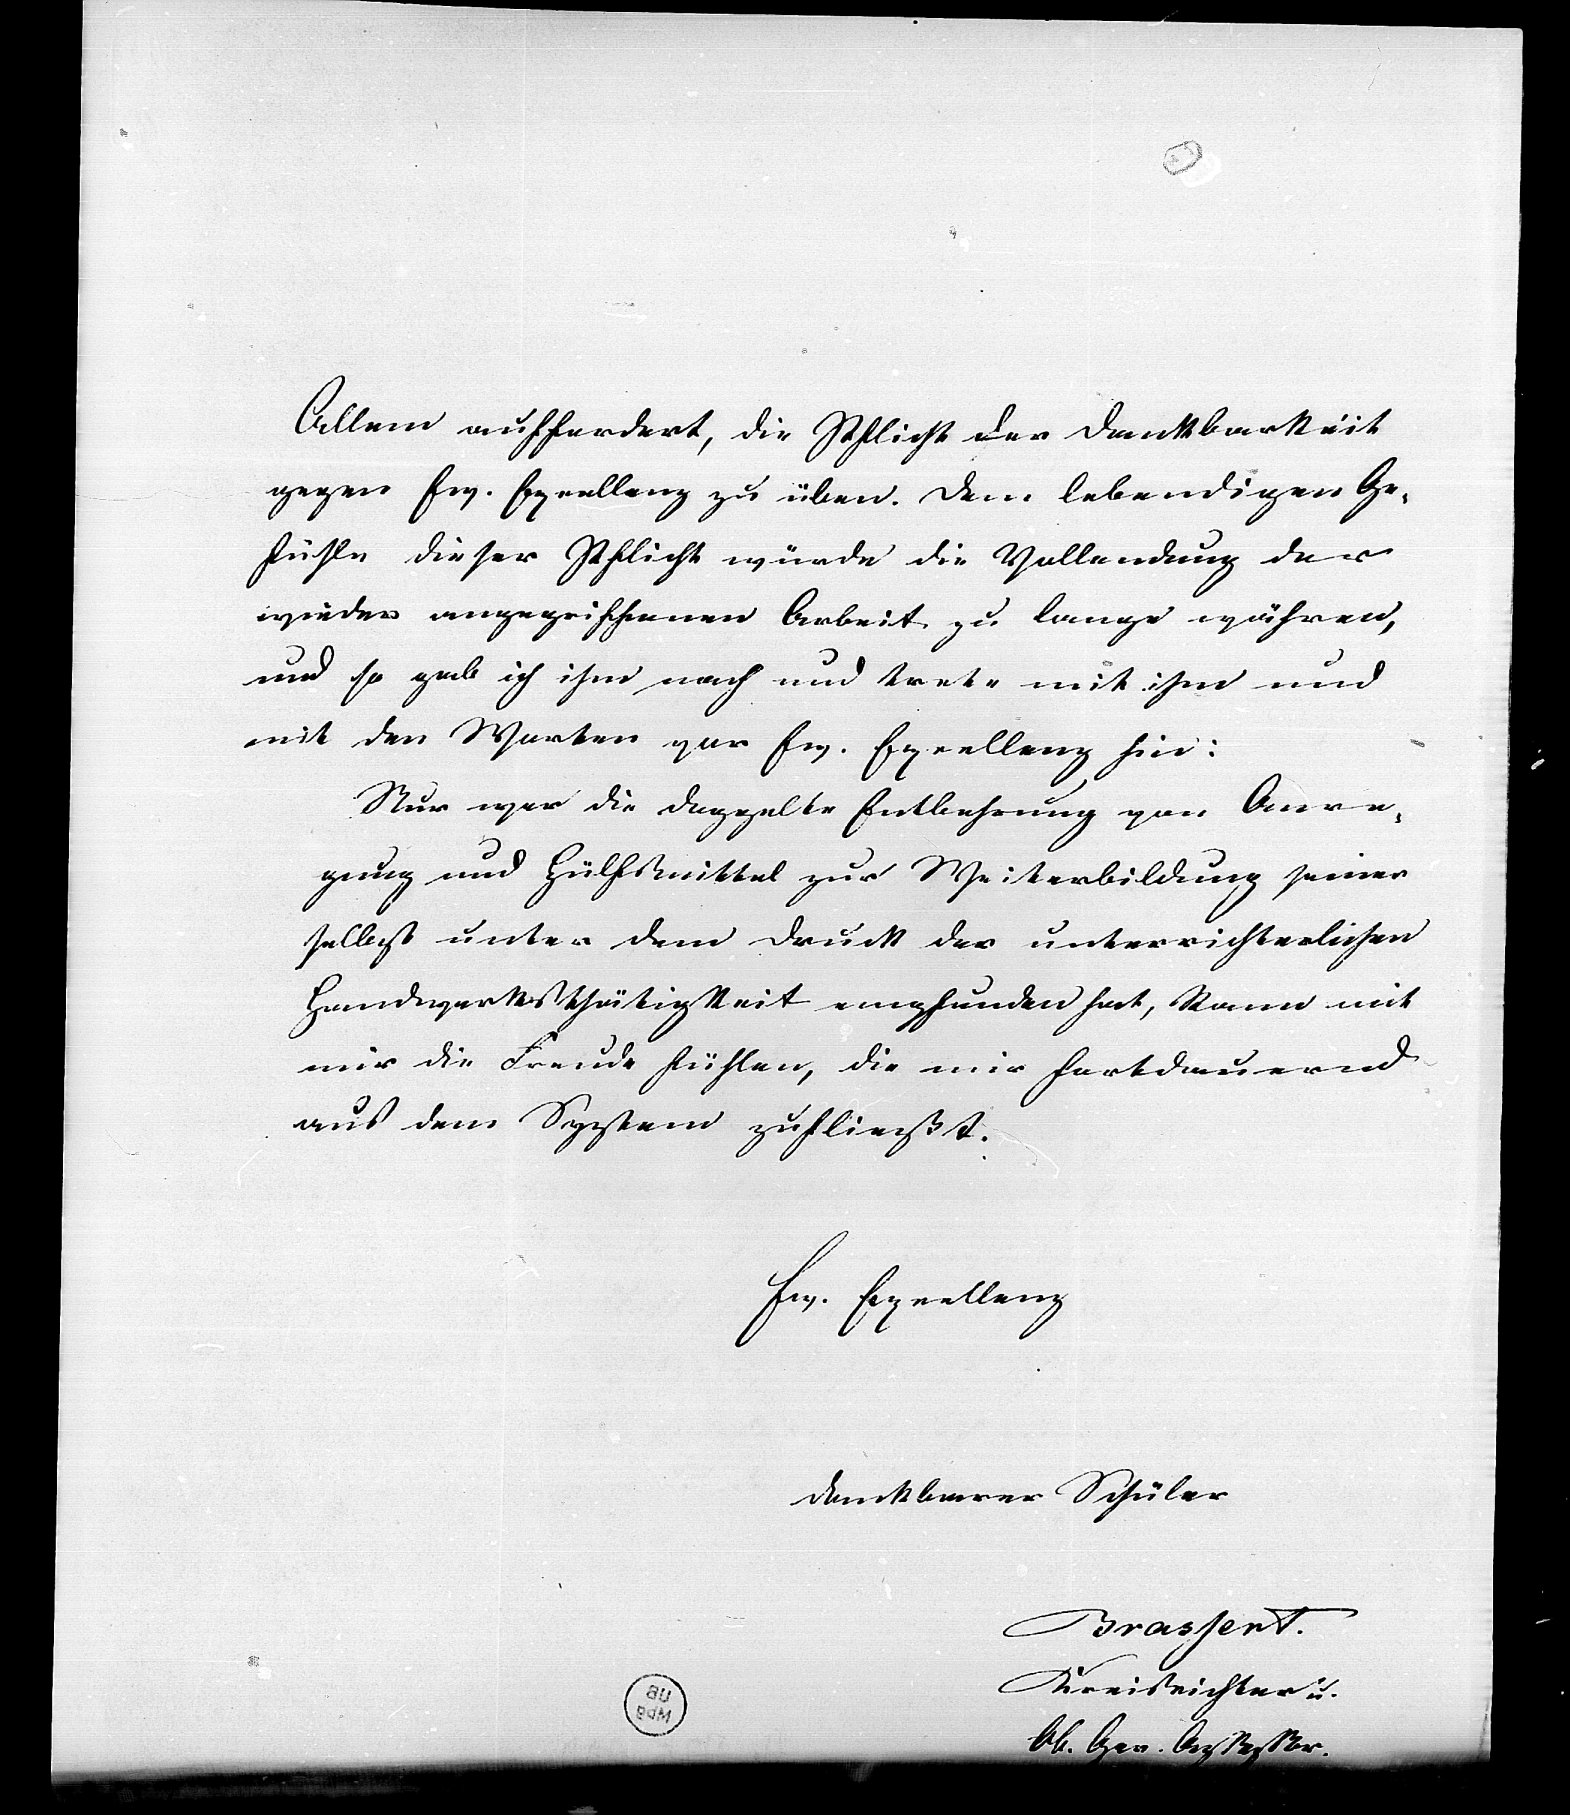 Allem auffordert, die Pflicht der Dankbarkeit
gegen Ew. Excellenz zu üben. Dem lebendigen Ge-
fühle dieser Pflicht würde die Vollendung der
wieder angegriffenen Arbeit zu lange währen,
und so gab ich ihm nach und trete mit ihm und
mit den Worten vor Ew. Excellenz hin:
Nur wer die doppelte Entbehrung von Anre-
gung und Hülfsmittel zur Weiterbildung seiner
selbst unter dem Druck der unterrichterlichen
Handwerksthätigkeit empfunden hat, kann mit
mir die Freude fühlen, die mir fortdauernd
aus dem System zufließt.
Ew. Excellenz
dankbarer Schüler
Brassert.
Kreisrichter u.
Ob. Ger. Assessor.
UB
Mbg